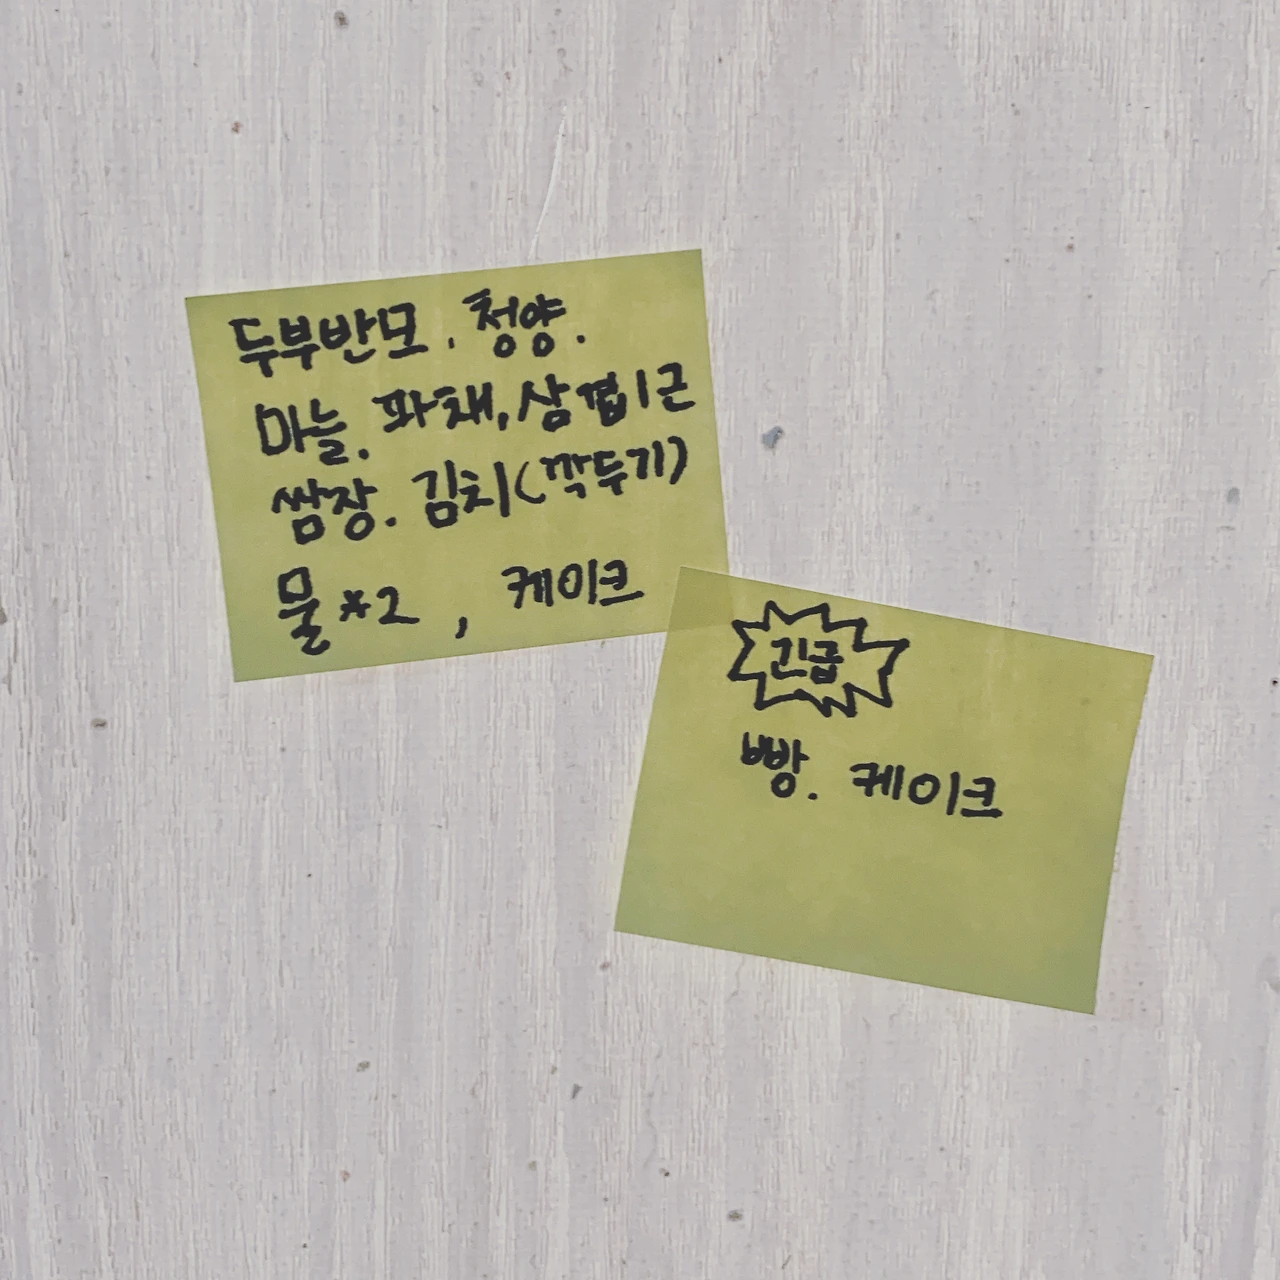 두부반모. 청양.
마늘. 파채, 삼겹1근
쌈장. 김치(깍두기)
물*2, 케이크
긴급
빵. 케이크